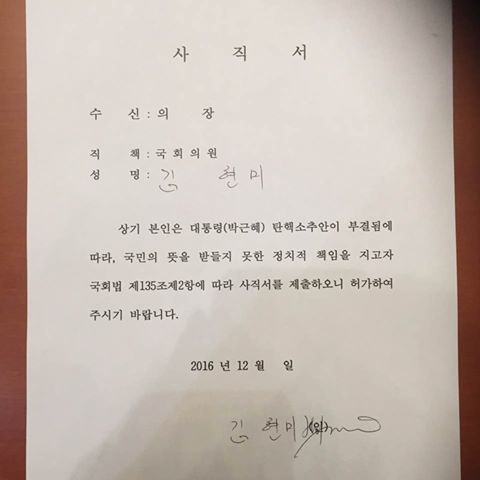 사 직 서
수 신 : 의 장
직 책 : 국회의원
성 명 : 김 현미
상기 본인은 대통령(박근혜) 탄핵소추안이 부결됨에
따라, 국민의 뜻을 받들지 못한 정치적 책임을 지고자
국회법 제135조제2항에 따라 사직서를 제출하오니 허가하여
주시기 바랍니다.
2016 년 12 월 일
김 현미 (인)